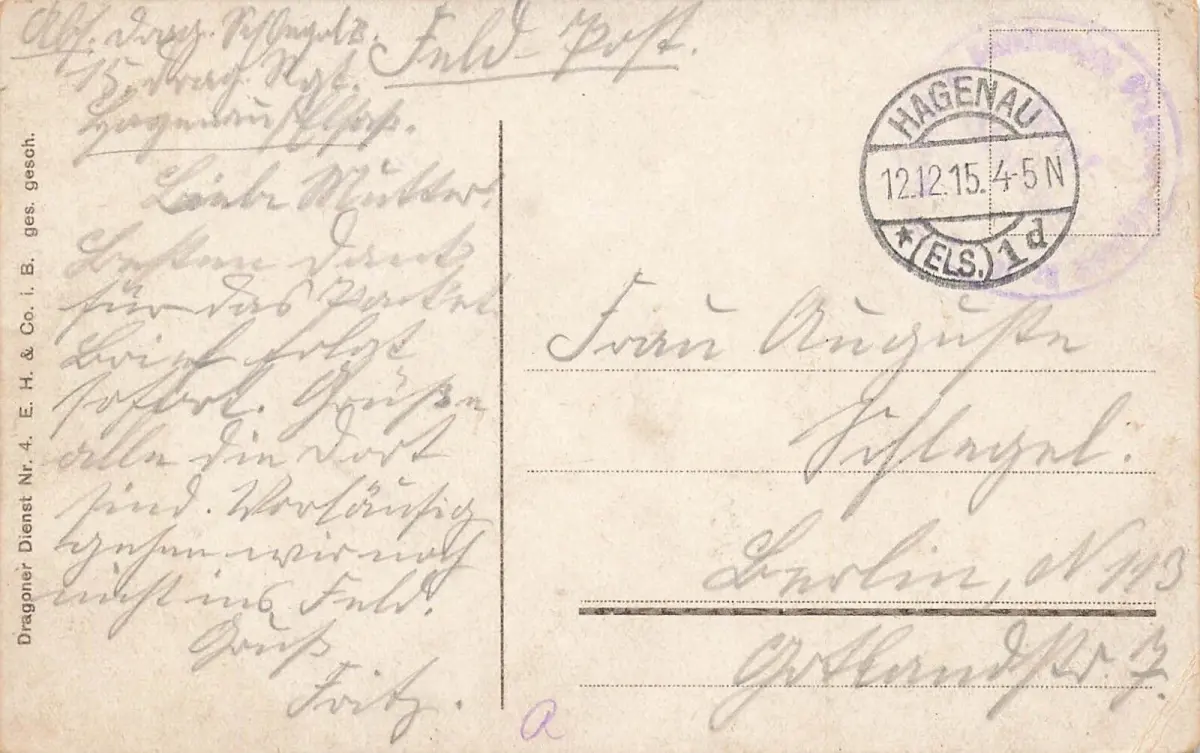 Abs. Drag. Schlegel 2.
15. Drag. Rgt.
Hagenau Elsaß.
Feld-Post.
Liebe Mutter!
Besten Dank
für das Packet.
Brief folgt
sofort. Grüße
alle die dort
sind. Vorläufig
gehen wir noch
nicht ins Feld.
Gruß
Fritz.
Dragoner Dienst Nr. 4. E. H. & Co. i. B. ges. gesch.
HAGENAU
12.12.15. 4-5 N
* (ELS.) 1 d
Frau Auguste
Schlegel.
Berlin, N 113
Gotlandstr. 7.